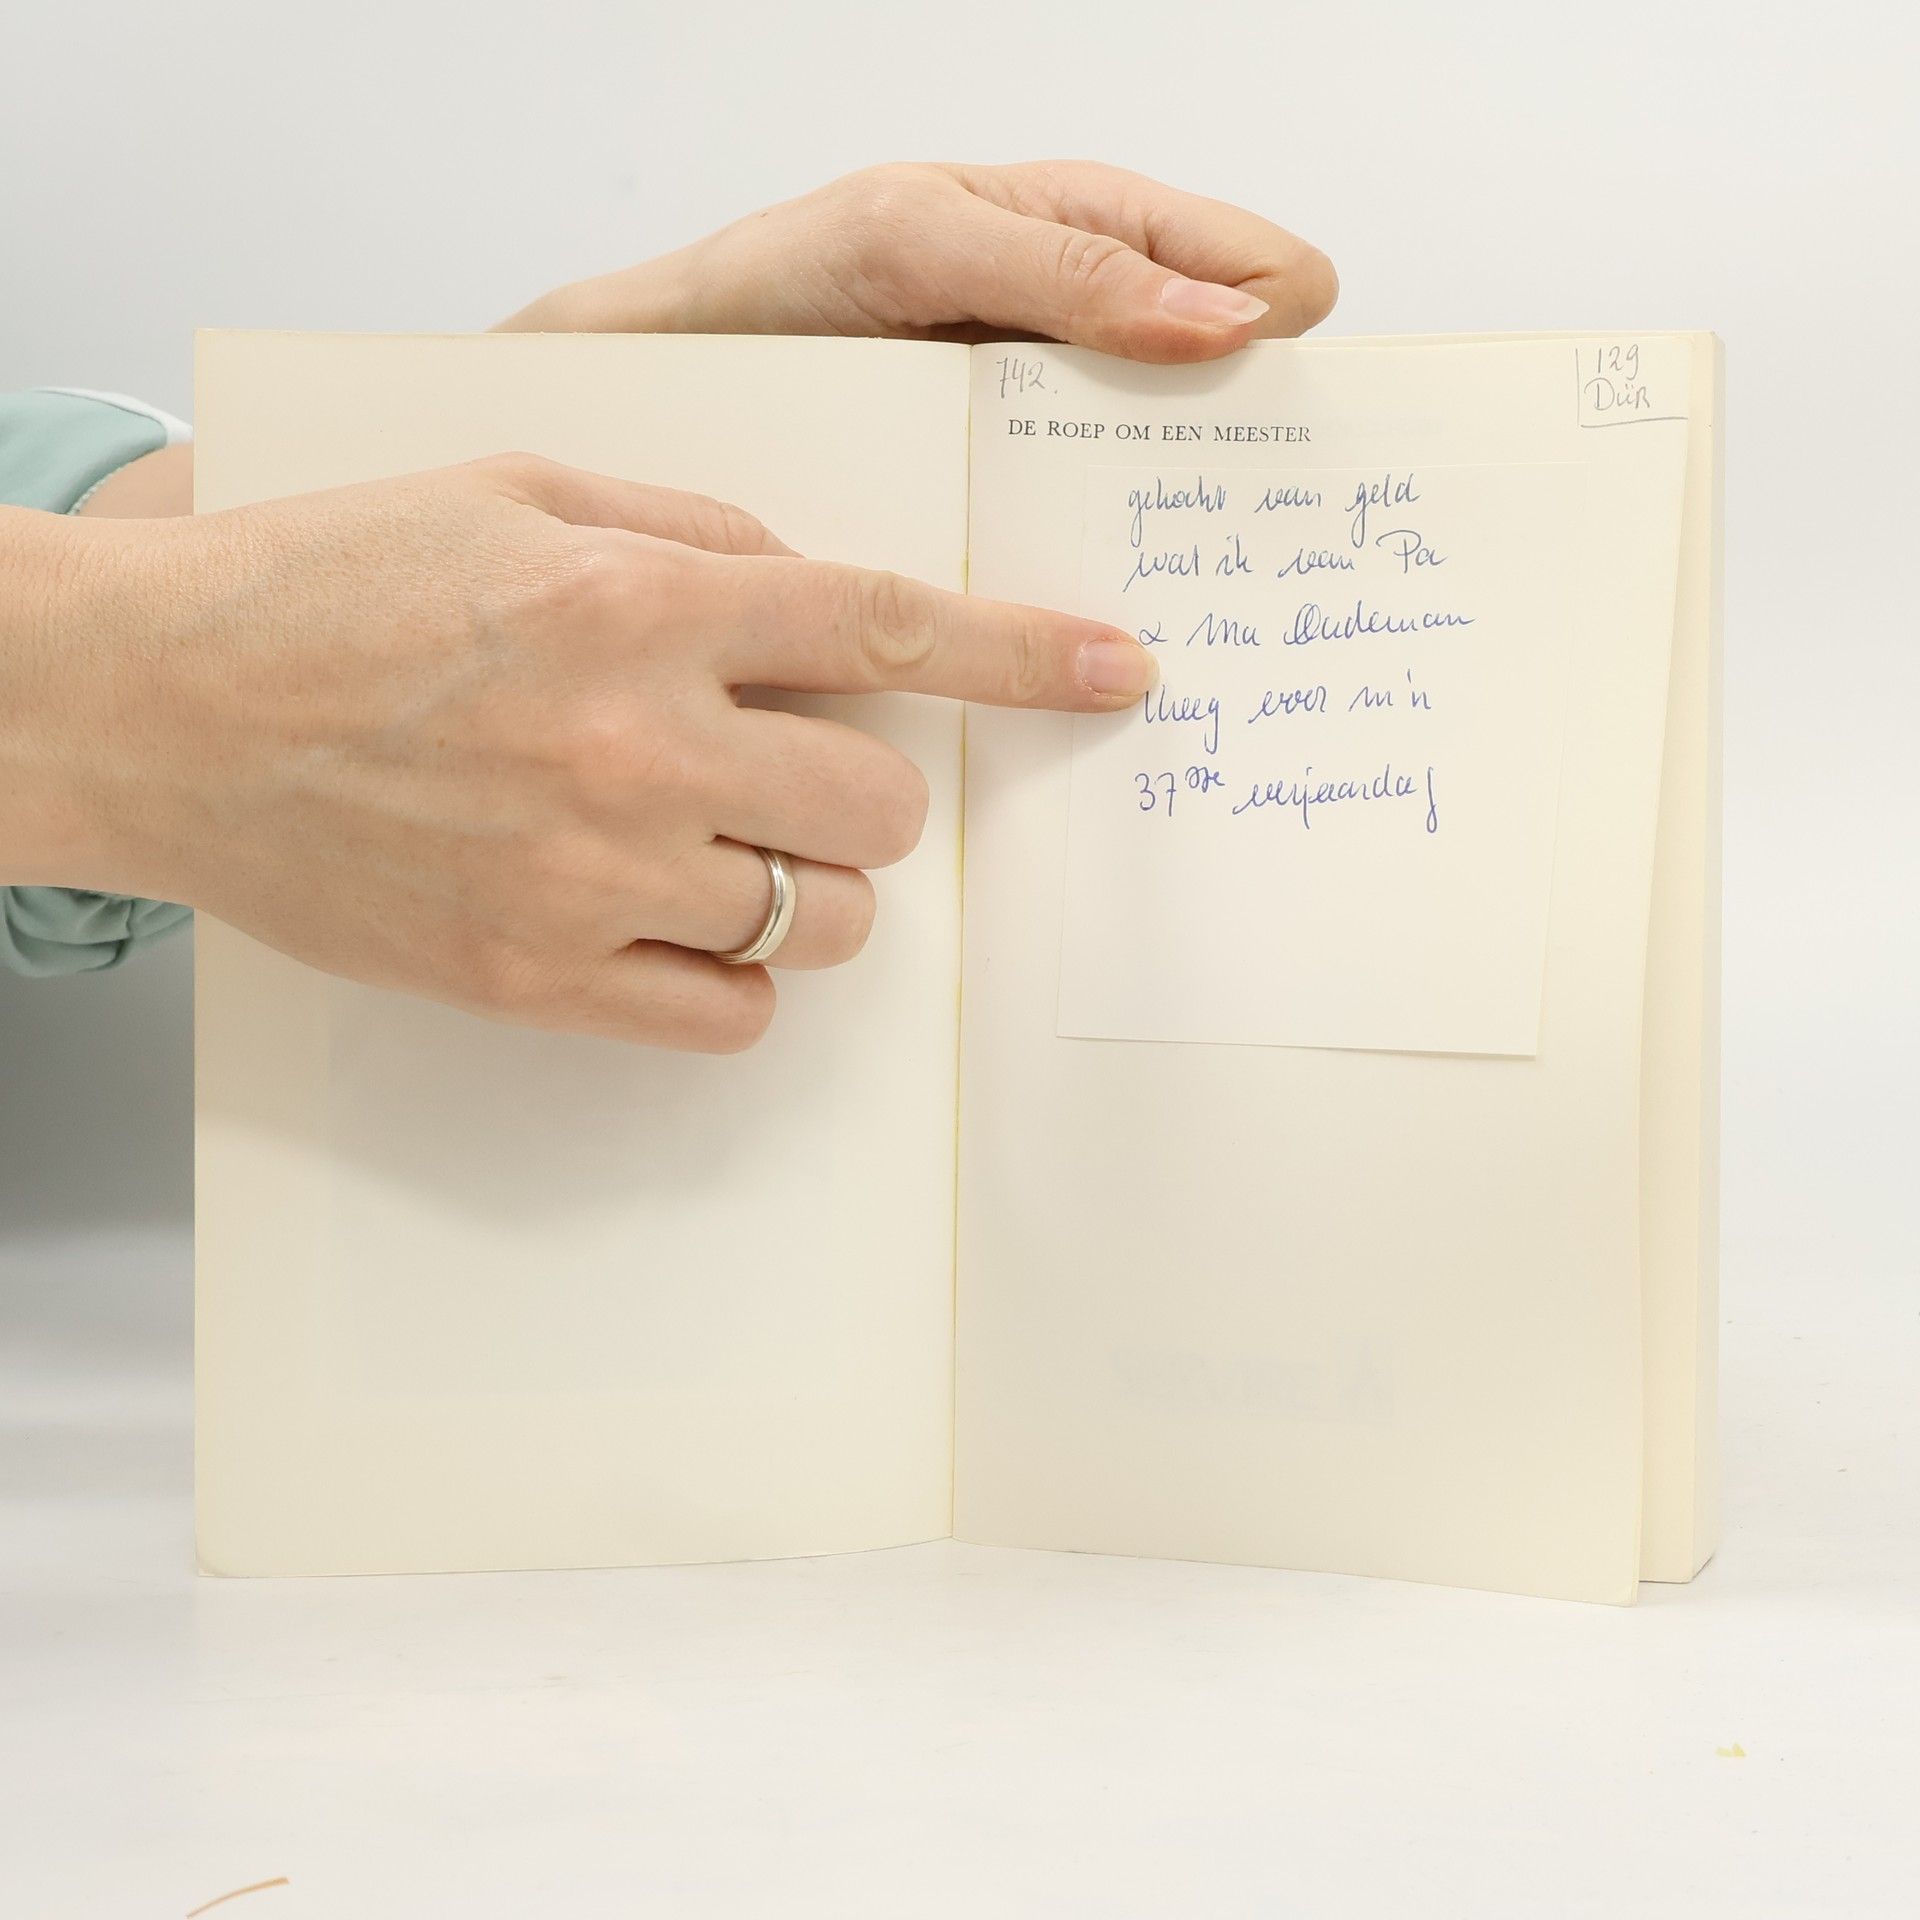 742.
129
DüR
DE ROEP OM EEN MEESTER
gekocht van geld
wat ik van Pa
& Ma Oudeman
kreeg voor m'n
37ste verjaardag